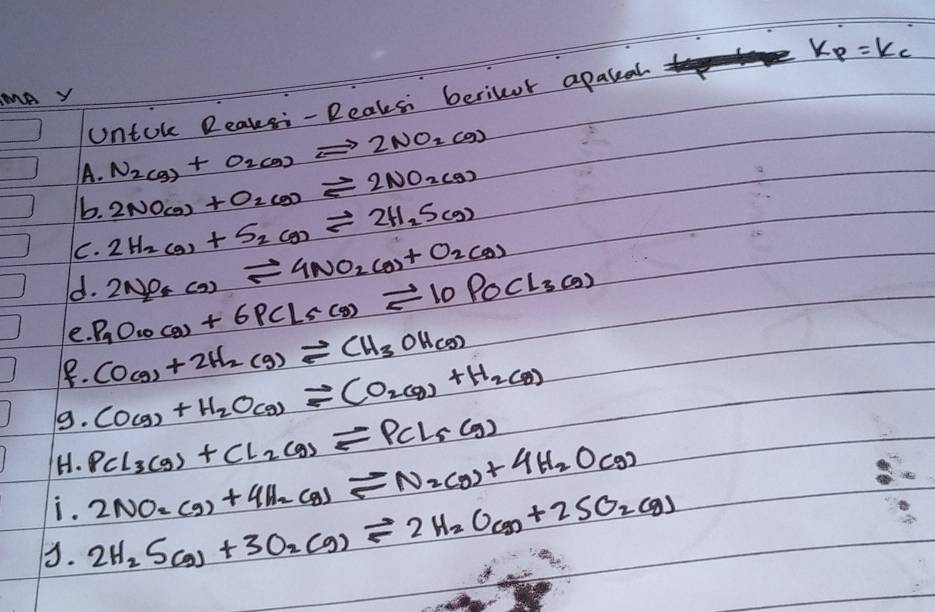 MA Y
Untuk Reaksi-Reaksi berikut apakah Kp = Kc
A. N2(g) + O2(g) ⇌ 2NO2(g)
b. 2NO(g) + O2(g) ⇌ 2NO2(g)
C. 2H2(g) + S2(g) ⇌ 2H2S(g)
d. 2N2O5(g) ⇌ 4NO2(g) + O2(g)
e. P4O10(g) + 6PCL5(g) ⇌ 10 POCL3(g)
f. CO(g) + 2H2(g) ⇌ CH3OH(g)
g. CO(g) + H2O(g) ⇌ CO2(g) + H2(g)
H. PCl3(g) + CL2(g) ⇌ PCL5(g)
i. 2NO2(g) + 4H2(g) ⇌ N2(g) + 4H2O(g)
J. 2H2S(g) + 3O2(g) ⇌ 2H2O(g) + 2SO2(g)